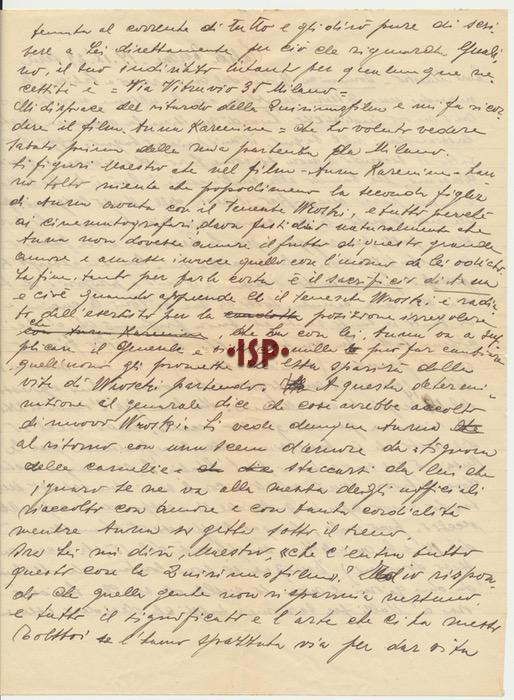 tenuta al corrente di tutto e gli dirò pure di scri-
vere a Lei direttamente per ciò che riguarda Guali-
no, il suo indirizzo intanto per qualunque ne-
cessità è = Via Vitruvio 35 Milano =
Mi dispiace del ritardo della Quirinusfilm e mi fa ricor-
dare il film Anna Karenine = che ho voluto vedere
sabato prima della mia partenza da Milano.
Si figuri Maestro che nel film - Anna Karenine - han-
no tolto niente che popodimeno la seconda figlia
di Anna avuta con il Tenente Wroski, e tutto perché
ai cinematografari, dava fastidio naturalmente che
Anna non dovesse amare il frutto di questo grande
amore e amasse invece quello con l'uomo da lei odiato.
La fine, tanto per farla corta è il sacrificio di Anna
e cioè quando apprende che il tenente Wroski è radia-
to dall'esercito per la condotta posizione irregolare
con Anna Karenine, che con lei, Anna va a sup-
plicare il Generale e
ISP
nulla può far cambiare
quell'uomo gli promette essa sparirà dalla
vita di Wroski partendo. A questa determi-
nazione il generale dice che così avrebbe accolto
di nuovo Wroski. Si vede dunque Anna
al ritorno con una scena d'amore da "Signora
delle camelie" staccarsi da lui che
ignaro se ne va alla mensa degli ufficiali
riaccolto con amore e con tanta cordialità
mentre Anna si getta sotto il treno.
Ora Lei mi dirà, Maestro, «che c'entra tutto
questo con la Quirinusfilm»? Ed io rispon-
do che quella gente non risparmia nessuno
e tutto il significato e l'arte che ci ha messo
Tolstoi se l'hanno spazzata via per dar vita